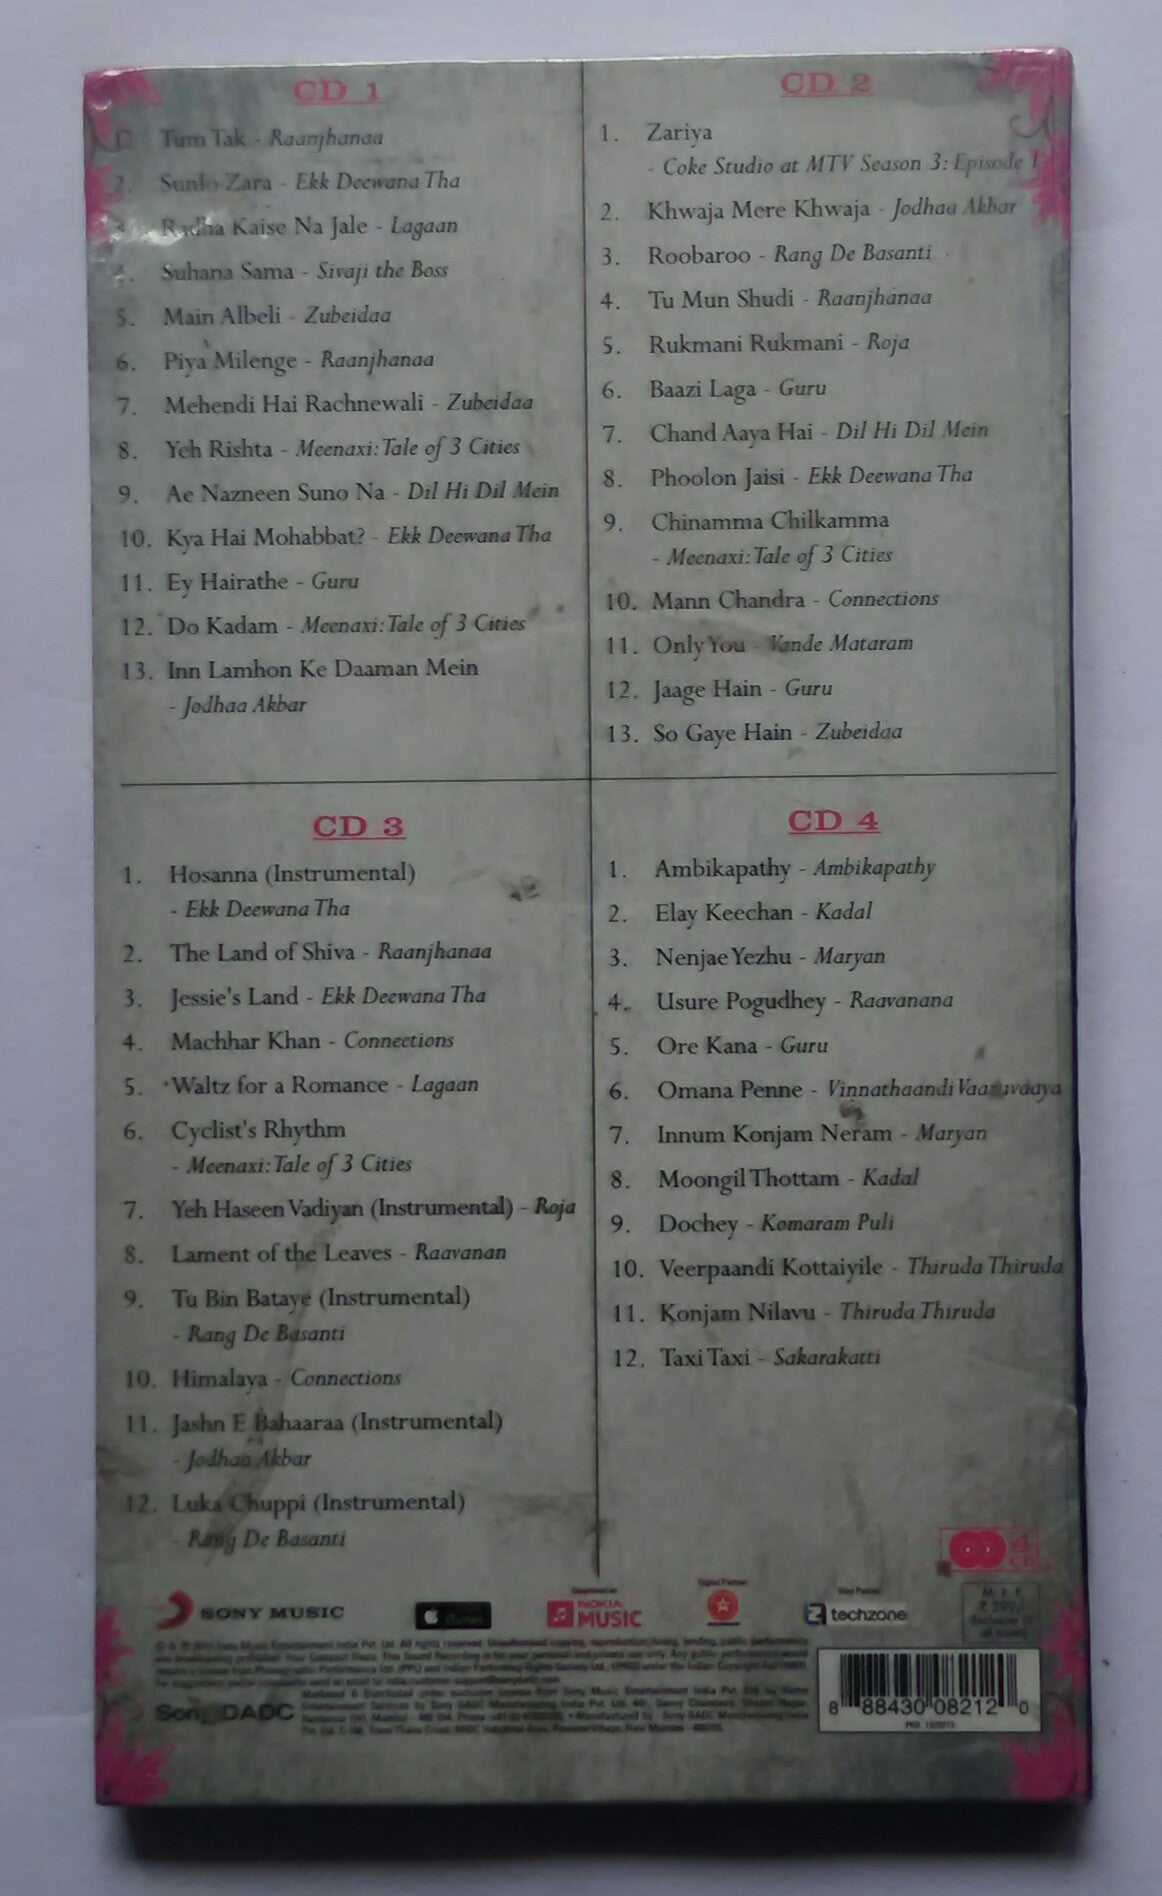 CD 1
Tum Tak - Raanjhanaa
2. Sunlo Zara - Ekk Deewana Tha
Radha Kaise Na Jale - Lagaan
4. Suhana Sama - Sivaji the Boss
5. Main Albeli - Zubeidaa
6. Piya Milenge - Raanjhanaa
7. Mehendi Hai Rachnewali - Zubeidaa
8. Yeh Rishta - Meenaxi: Tale of 3 Cities
9. Ae Nazneen Suno Na - Dil Hi Dil Mein
10. Kya Hai Mohabbat? - Ekk Deewana Tha
11. Ey Hairathe - Guru
12. Do Kadam - Meenaxi: Tale of 3 Cities
13. Inn Lamhon Ke Daaman Mein
- Jodhaa Akbar
CD 2
1. Zariya
- Coke Studio at MTV Season 3: Episode 1
2. Khwaja Mere Khwaja - Jodhaa Akbar
3. Roobaroo - Rang De Basanti
4. Tu Mun Shudi - Raanjhanaa
5. Rukmani Rukmani - Roja
6. Baazi Laga - Guru
7. Chand Aaya Hai - Dil Hi Dil Mein
8. Phoolon Jaisi - Ekk Deewana Tha
9. Chinamma Chilkamma
- Meenaxi: Tale of 3 Cities
10. Mann Chandra - Connections
11. Only You - Vande Mataram
12. Jaage Hain - Guru
13. So Gaye Hain - Zubeidaa
CD 3
1. Hosanna (Instrumental)
- Ekk Deewana Tha
2. The Land of Shiva - Raanjhanaa
3. Jessie's Land - Ekk Deewana Tha
4. Machhar Khan - Connections
5. Waltz for a Romance - Lagaan
6. Cyclist's Rhythm
- Meenaxi: Tale of 3 Cities
7. Yeh Haseen Vadiyan (Instrumental) - Roja
8. Lament of the Leaves - Raavanan
9. Tu Bin Bataye (Instrumental)
- Rang De Basanti
10. Himalaya - Connections
11. Jashn E Bahaaraa (Instrumental)
- Jodhaa Akbar
12. Luka Chuppi (Instrumental)
- Rang De Basanti
CD 4
1. Ambikapathy - Ambikapathy
2. Elay Keechan - Kadal
3. Nenjae Yezhu - Maryan
4. Usure Pogudhey - Raavanana
5. Ore Kana - Guru
6. Omana Penne - Vinnathaandi Vaaruvaaya
7. Innum Konjam Neram - Maryan
8. Moongil Thottam - Kadal
9. Dochey - Komaram Puli
10. Veerpaandi Kottaiyile - Thiruda Thiruda
11. Konjam Nilavu - Thiruda Thiruda
12. Taxi Taxi - Sakarakatti
4
CD
SONY MUSIC
iTunes
NOKIA
MUSIC
Digital Partner
techzone
M. R. P.
Sony DADC
8 88430 08212 0